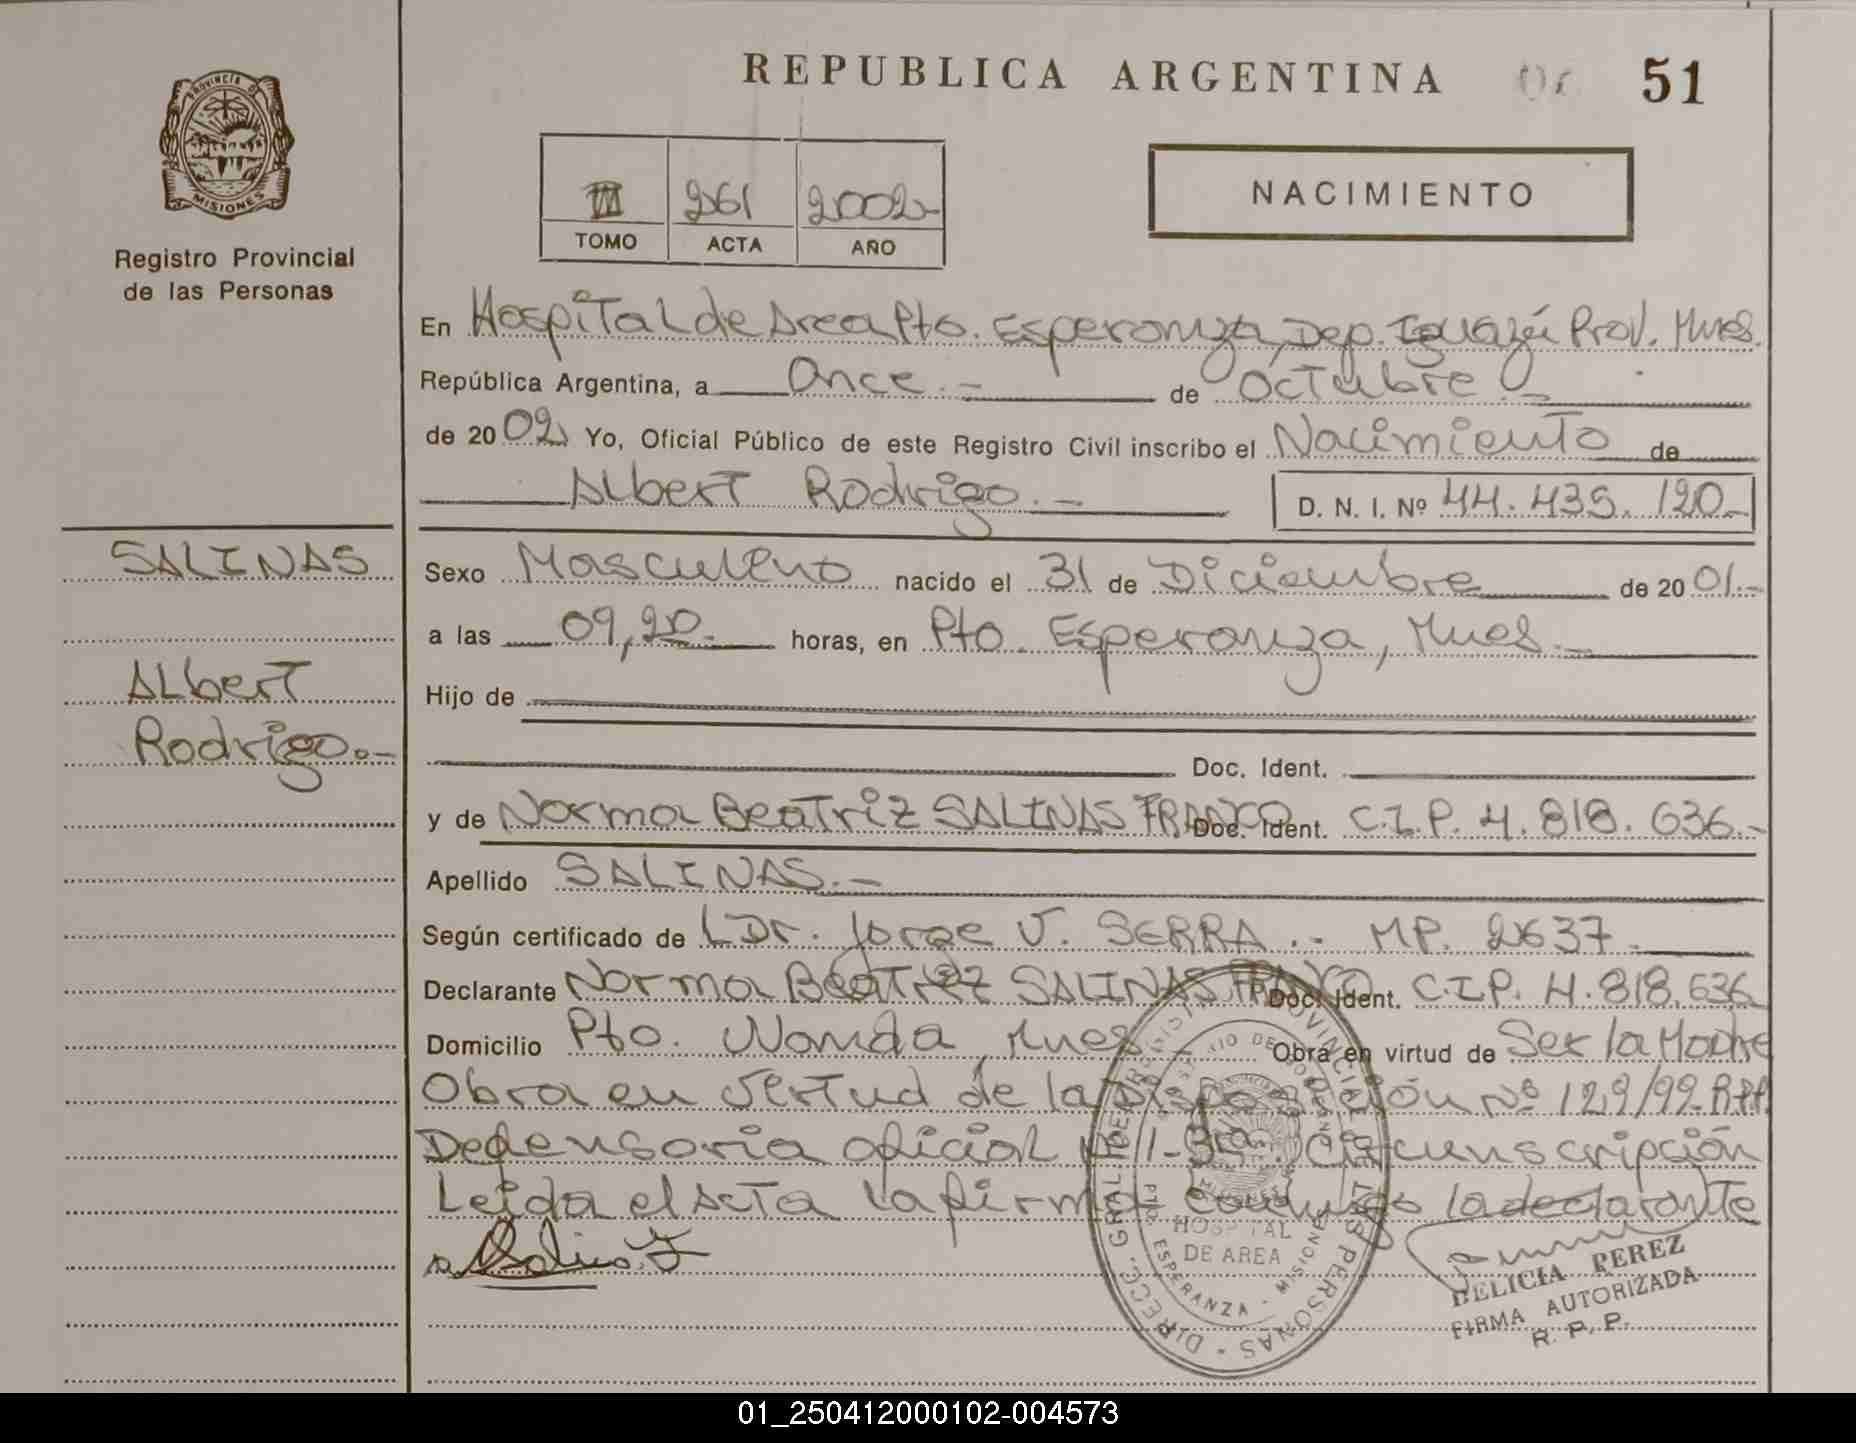 REPUBLICA ARGENTINA 51
PROVINCIA DE
MISIONES
Registro Provincial
de las Personas
III 261 2002
TOMO ACTA AÑO
NACIMIENTO
En Hospital de Area Pto. Esperanza, Dep. Iguazú Prov. Mnes.
República Argentina, a Once.- de Octubre.-
de 2002 Yo, Oficial Público de este Registro Civil inscribo el Nacimiento de
Albert Rodrigo.- D. N. I. Nº 44.435.120-
SALINAS
Albert
Rodrigo.-
Sexo Masculino nacido el 31 de Diciembre de 2001.-
a las 09,20.- horas, en Pto. Esperanza, Mnes.-
Hijo de
Doc. Ident.
y de Norma Beatriz SALINAS FRANCO Doc. Ident. C.I.P. 4.818.636.-
Apellido SALINAS.-
Según certificado de LDr. Jorge V. SERRA.- MP. 2637.
Declarante Norma Beatriz SALINAS FRANCO Doc. Ident. C.I.P. 4.818.636
Domicilio Pto. Wanda, Mnes Obra en virtud de Ser la Madre
Obra en Virtud de la Disposición Nº 129/99-R.P.P.
Defensoria oficial Nº 1-3ra. Circunscripción
Leida el Acta la firma conmigo la declarante
DIRECC. GRAL. DE REGISTRO PROVINCIAL DE LAS PERSONAS
HOSPITAL
DE AREA
PTO. ESPERANZA - MISIONES
DELICIA PEREZ
FIRMA AUTORIZADA
R. P. P.
01_250412000102-004573